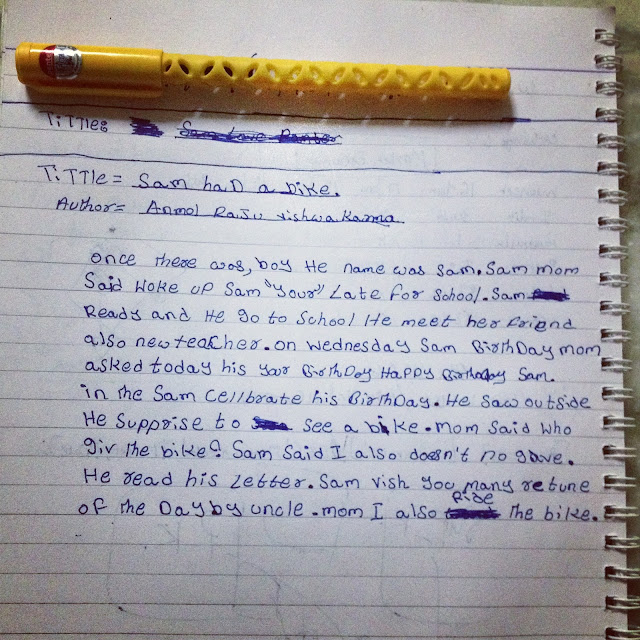 TiTTle:
TiTTle = Sam haD a bike.
Author = Anmol Raju vishwakarma
once there was, boy He name was Sam. Sam mom
Said woke up Sam "your" Late for School. Sam
Ready and He go to School He meet her friend
also new teacher. on wednesday Sam BirthDay mom
asked today his your BirthDay Happy Birthday Sam.
in the Sam Cellbrate his BirthDay. He Saw outside
He Supprise to see a bike. mom Said who
giv the bike? Sam Said I also doesn't no gave.
He read his Letter. Sam vish you many retune
of the Day by uncle. mom I also Ride the bike.